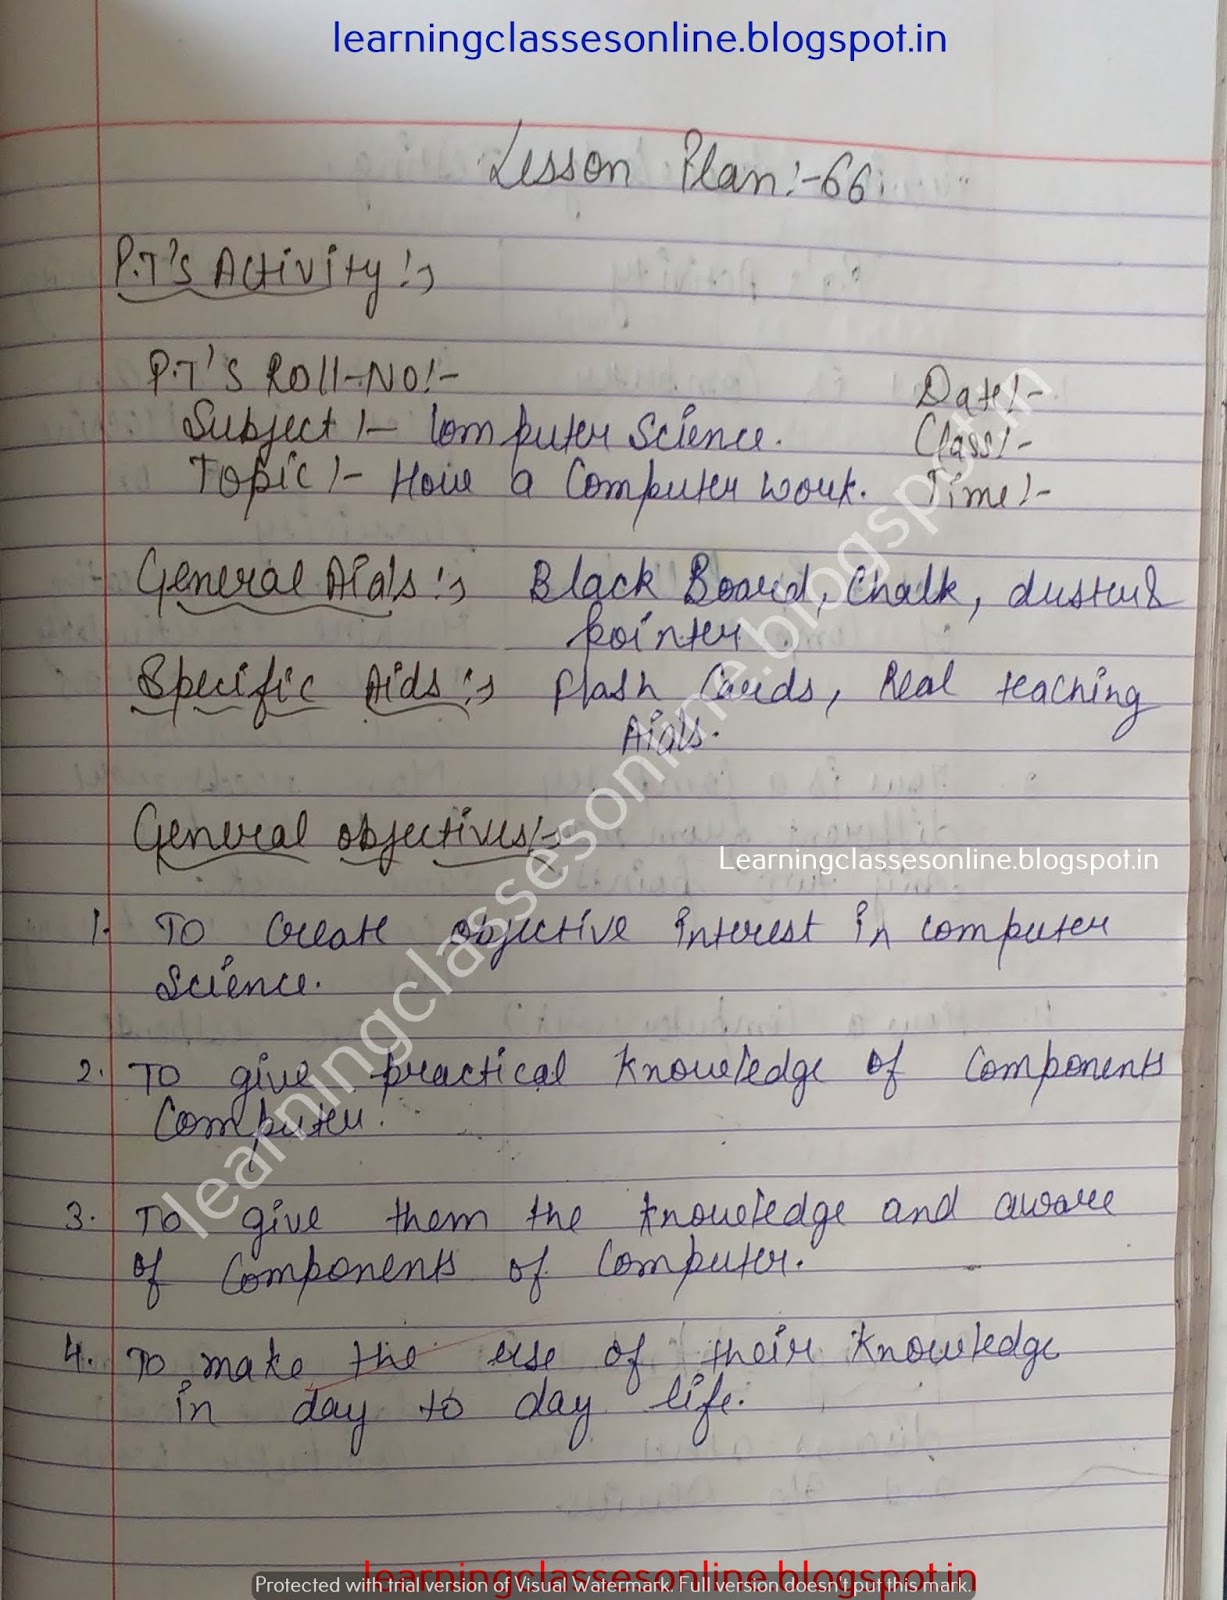 learningclassesonline.blogspot.in
Lesson Plan:-66
P.T's Activity:-
P.T's Roll-No:- Date:-
Subject:- Computer Science. Class:-
Topic:- How a Computer work. Time:-
General Aids:- Black Board, Chalk, duster &
pointer.
Specific Aids:- flash Cards, Real teaching
Aids.
General objectives:-
Learningclassesonline.blogspot.in
1. To create objective interest in computer
Science.
2. To give practical knowledge of Components
Computer.
3. To give them the knowledge and aware
of Components of Computer.
4. To make the use of their knowledge
in day to day life.
learningclassesonline.blogspot.in
learningclassesonline.blogspot.in
Protected with trial version of Visual Watermark. Full version doesn't put this mark.